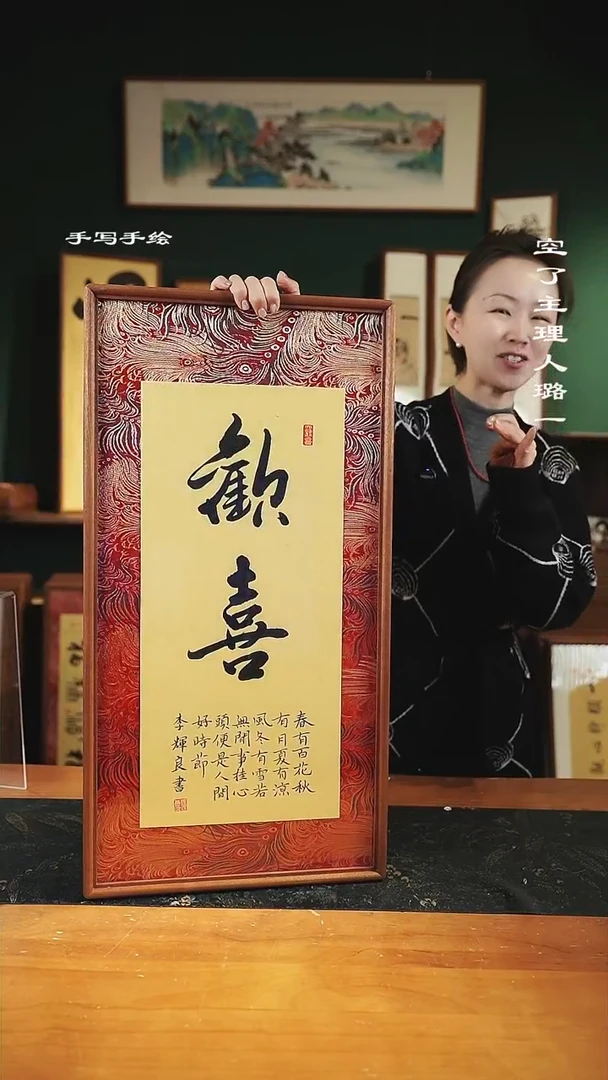 手写手绘
空了主理人璐一
歡
喜
春有百花秋
有月夏有涼
風冬有雪若
無閒事挂心
頭便是人間
好時節
李輝良書